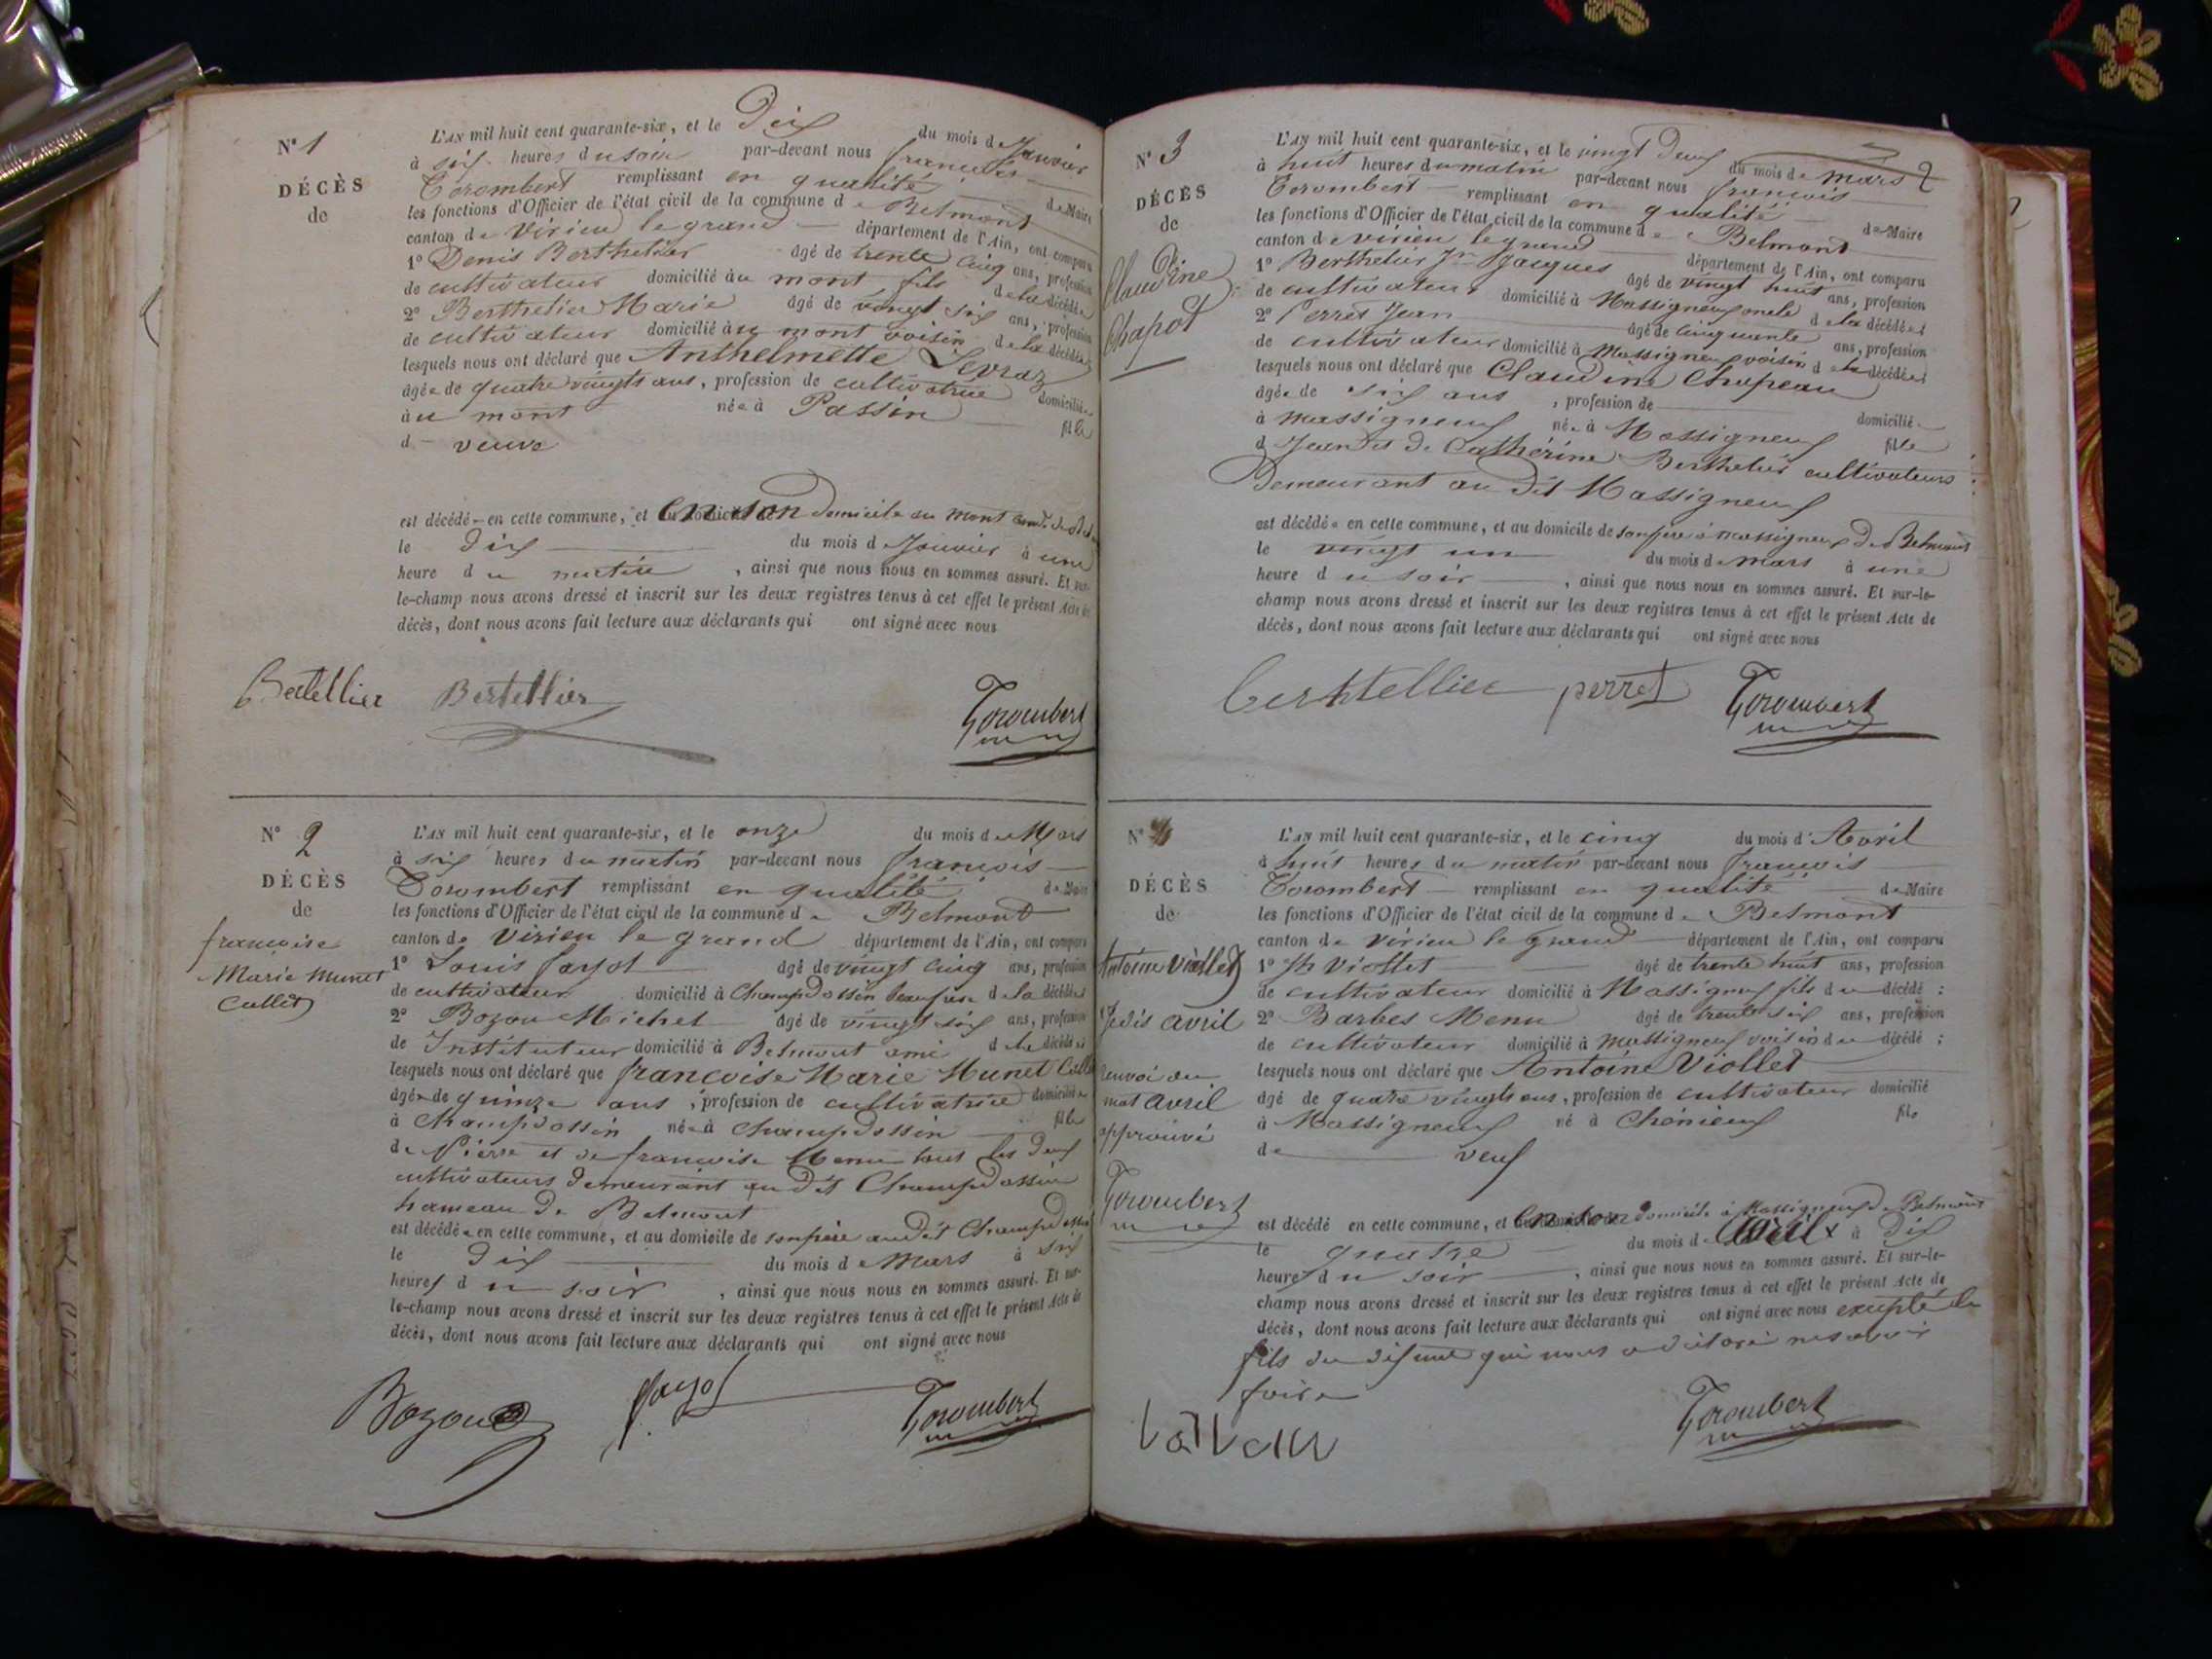 N° 1
DÉCÈS
de
L'AN mil huit cent quarante-six, et le Dix du mois de Janvier
à six heures du soir par-devant nous françois
Corombert remplissant en qualité de Maire
les fonctions d'Officier de l'état civil de la commune de Belmont
canton de Virieu le grand département de l'Ain, ont comparu
1° Denis Berthelier âgé de trente cinq ans, profession
de cultivateur domicilié au mont, fils de la décédée
2° Berthelier Marie âgé de vingt six ans, profession
de cultivateur domicilié au mont voisin de la décédée
lesquels nous ont déclaré que Anthelmette Levraz
âgée de quatre vingts ans, profession de cultivatrice domiciliée
au mont née à Passin fille
d veuve
est décédée en cette commune, et en son Domicile au mont
le dix du mois de Janvier à une
heure du matin, ainsi que nous nous en sommes assuré. Et sur-
le-champ nous avons dressé et inscrit sur les deux registres tenus à cet effet le présent Acte de
décès, dont nous avons fait lecture aux déclarants qui ont signé avec nous
Bertellier Bertellier Corombert
N° 2
DÉCÈS
de
françoise
Marie Munet
Cullet
L'AN mil huit cent quarante-six, et le onze du mois de Mars
à six heures du matin par-devant nous françois
Corombert remplissant en qualité de Maire
les fonctions d'Officier de l'état civil de la commune de Belmont
canton de Virieu le grand département de l'Ain, ont comparu
1° Louis âgé de vingt cinq ans, profession
de cultivateur domicilié à Champdossin beaufrère de la décédée
2° Bozon Michel âgé de vingt six ans, profession
de Instituteur domicilié à Belmont ami de la décédée
lesquels nous ont déclaré que françoise Marie Munet Cullet
âgée de quinze ans, profession de cultivatrice domiciliée
à Champdossin née à Champdossin fille
de Pierre et de françoise Menu tous les deux
cultivateurs demeurant au dit Champdossin
hameau de Belmont
est décédée en cette commune, et au domicile de son père audit Champdossin
le Dix du mois de Mars à six
heures du soir, ainsi que nous nous en sommes assuré. Et sur-
le-champ nous avons dressé et inscrit sur les deux registres tenus à cet effet le présent Acte de
décès, dont nous avons fait lecture aux déclarants qui ont signé avec nous
Bozon Corombert
2
N° 3
DÉCÈS
de
Claudine
Chapot
L'AN mil huit cent quarante-six, et le vingt Deux du mois de Mars
à huit heures du matin par-devant nous françois
Corombert remplissant en qualité de Maire
les fonctions d'Officier de l'état civil de la commune de Belmont
canton de Virieu le grand département de l'Ain, ont comparu
1° Berthelier Jn Jacques âgé de vingt huit ans, profession
de cultivateur domicilié à Massigneux oncle de la décédée
2° Perret Jean âgé de cinquante ans, profession
de cultivateur domicilié à Massigneux voisin de la décédée
lesquels nous ont déclaré que Claudine Chapeau
âgée de six ans, profession de domicilié
à Massigneux née à Massigneux fille
d Jean et de Cathérine Berthelier cultivateurs
Demeurant au dit Massigneux
est décédée en cette commune, et au domicile de son père à Massigneux de Belmont
le vingt un du mois de Mars à une
heure du soir, ainsi que nous nous en sommes assuré. Et sur-le-
champ nous avons dressé et inscrit sur les deux registres tenus à cet effet le présent Acte de
décès, dont nous avons fait lecture aux déclarants qui ont signé avec nous
Berhtellier perret Corombert
N° 4
DÉCÈS
de
Antoine Viollet
Je dis avril
renvoi du
mot avril
approuvé
Corombert
L'AN mil huit cent quarante-six, et le cinq du mois d'Avril
à huit heures du matin par-devant nous françois
Corombert remplissant en qualité de Maire
les fonctions d'Officier de l'état civil de la commune de Belmont
canton de Virieu le grand département de l'Ain, ont comparu
1° Jh Viollet âgé de trente huit ans, profession
de cultivateur domicilié à Massigneux fils du décédé ;
2° Barbes Menu âgé de trente six ans, profession
de cultivateur domicilié à Massigneux voisin du décédé ;
lesquels nous ont déclaré que Antoine Viollet
âgé de quatre vingts ans, profession de cultivateur domicilié
à Massigneux né à Chénieux fils
de veuf
est décédé en cette commune, et en son domicile à Massigneux de Belmont
le quatre du mois de avril x à Dix
heures du soir, ainsi que nous nous en sommes assuré. Et sur-le-
champ nous avons dressé et inscrit sur les deux registres tenus à cet effet le présent Acte de
décès, dont nous avons fait lecture aux déclarants qui ont signé avec nous excepté le
fils du défunt qui nous a déclaré ne savoir
faire
Corombert